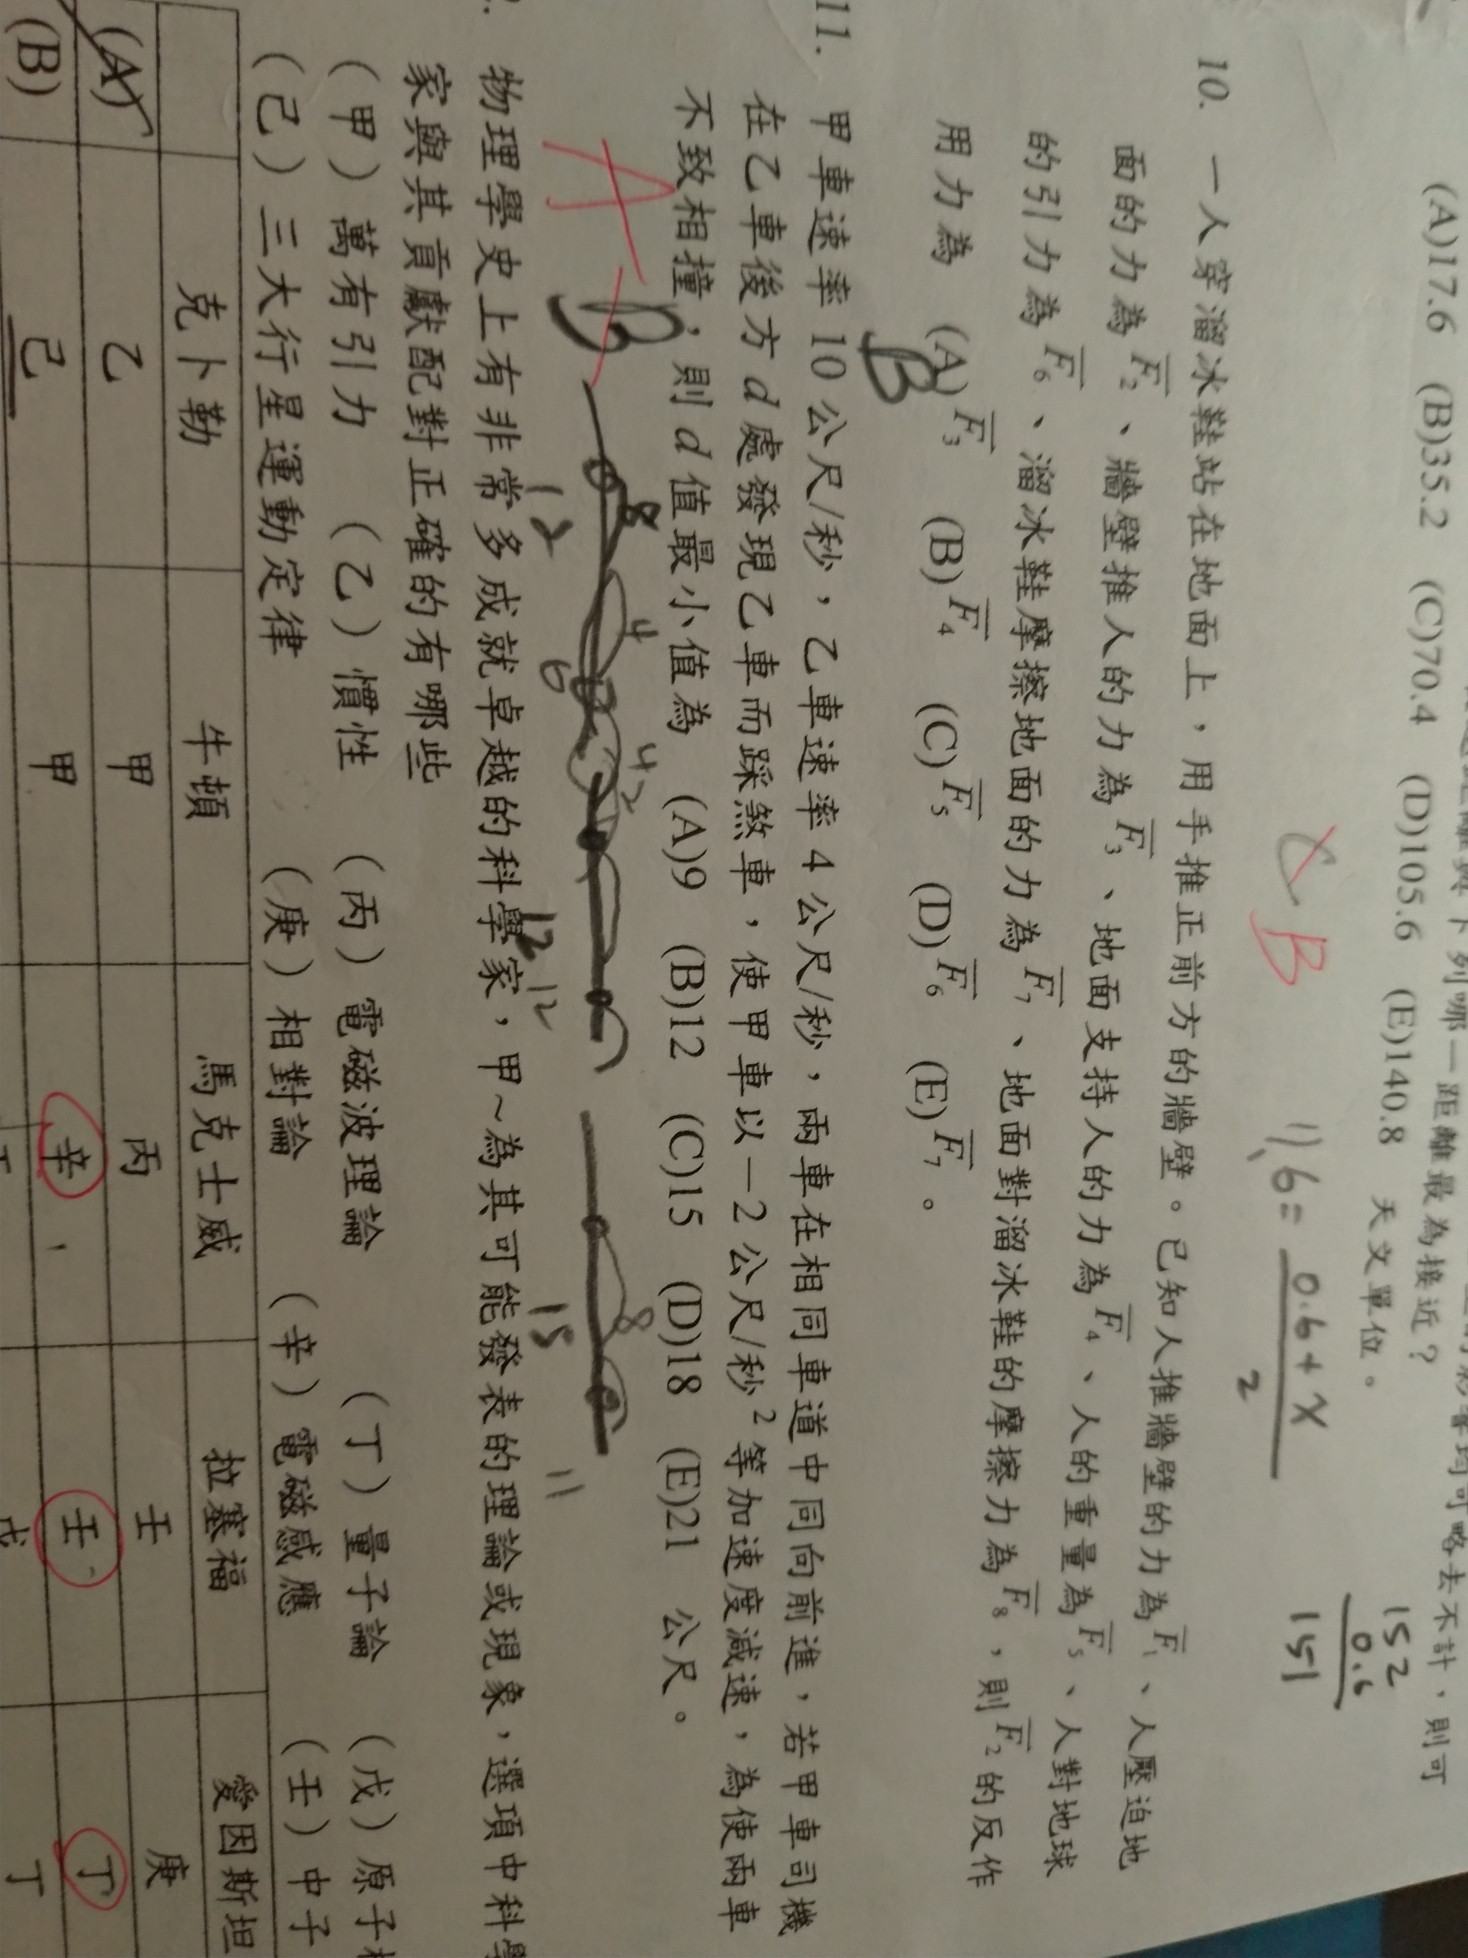 距離與下列哪一距離最為接近?
均可略去不計,則可
(A)17.6 (B)35.2 (C)70.4 (D)105.6 (E)140.8 天文單位。
152
0.6
151
11.6 = 0.6 + x
2
B
10. 一人穿溜冰鞋站在地面上,用手推正前方的牆壁。已知人推牆壁的力為F₁、人壓迫地
面的力為F₂、牆壁推人的力為F₃、地面支持人的力為F₄、人的重量為F₅、人對地球
的引力為F₆、溜冰鞋摩擦地面的力為F₇、地面對溜冰鞋的摩擦力為F₈,則F₂的反作
用力為 (A)F₃ (B)F₄ (C)F₅ (D)F₆ (E)F₇。
B
11. 甲車速率10公尺/秒,乙車速率4公尺/秒,兩車在相同車道中同向前進,若甲車司機
在乙車後方d處發現乙車而踩煞車,使甲車以-2公尺/秒²等加速度減速,為使兩車
不致相撞,則d值最小值為 (A)9 (B)12 (C)15 (D)18 (E)21 公尺。
A B
8 4 4 2 8
12 6 12 12 15 11
物理學史上有非常多成就卓越的科學家,甲~為其可能發表的理論或現象,選項中科學
家與其貢獻配對正確的有哪些
(甲)萬有引力 (乙)慣性 (丙)電磁波理論 (丁)量子論 (戊)原子
(己)三大行星運動定律 (庚)相對論 (辛)電磁感應 (壬)中子
克卜勒 牛頓 馬克士威 拉塞福 愛因斯坦
(A) 乙 甲 丙 壬 庚
(B) 己 甲 辛 壬 丁
丁 戊 丁